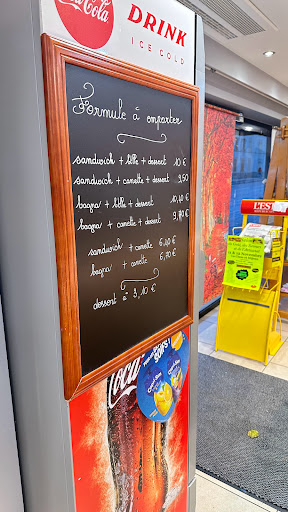 Coca-Cola
DRINK
ICE COLD
Formule à emporter
sandwich + bille + dessert 10 €
sandwich + canette + dessert 9,50
bagna + bille + dessert 10,40 €
bagna + canette + dessert
sandwich + canette 6,40 €
bagna + canette
dessert à 3,10 €
L'EST
Coca